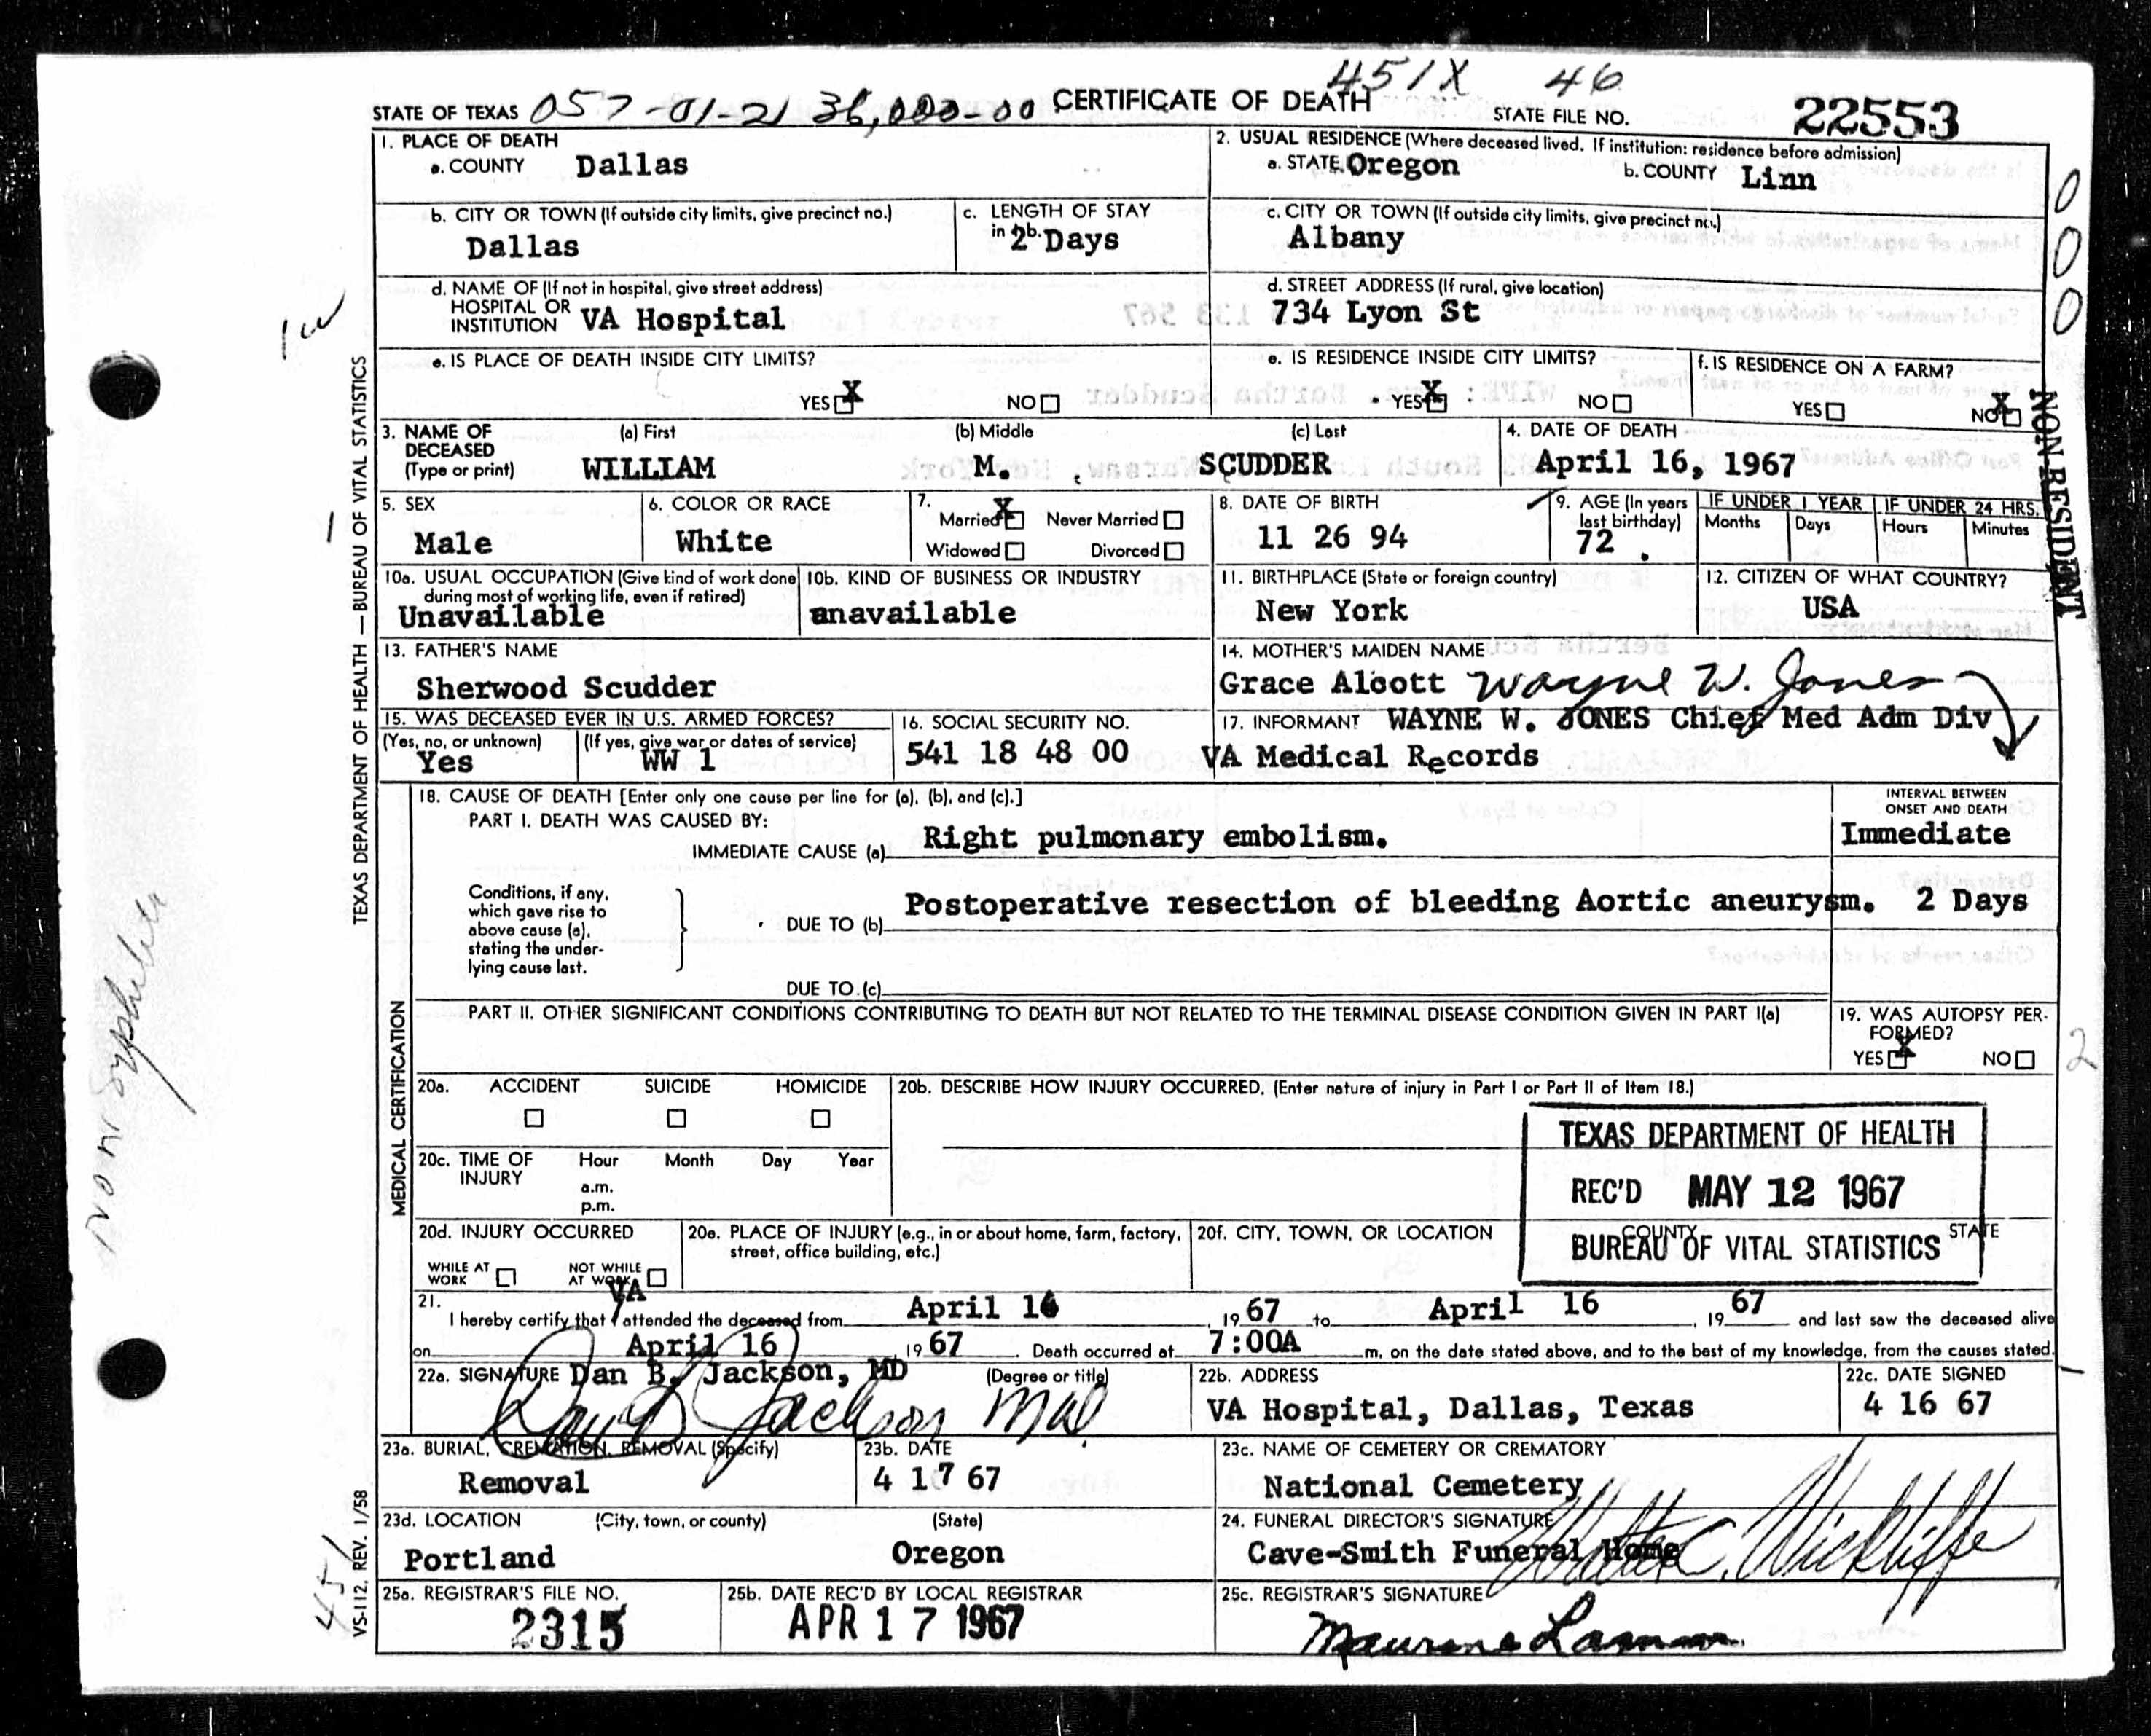 451X 46
STATE OF TEXAS 057-01-21 36,000-00 CERTIFICATE OF DEATH STATE FILE NO. 22553
1. PLACE OF DEATH
a. COUNTY Dallas
2. USUAL RESIDENCE (Where deceased lived. If institution: residence before admission)
a. STATE Oregon b. COUNTY Linn
b. CITY OR TOWN (If outside city limits, give precinct no.)
Dallas
c. LENGTH OF STAY in 2b.
2 Days
c. CITY OR TOWN (If outside city limits, give precinct no.)
Albany
d. NAME OF (If not in hospital, give street address)
HOSPITAL OR
INSTITUTION VA Hospital
d. STREET ADDRESS (If rural, give location)
734 Lyon St
e. IS PLACE OF DEATH INSIDE CITY LIMITS?
YES X NO
e. IS RESIDENCE INSIDE CITY LIMITS?
YES X NO
f. IS RESIDENCE ON A FARM?
YES NO X
000
NON RESIDENT
1w
1
3. NAME OF DECEASED (Type or print)
(a) First (b) Middle (c) Last
WILLIAM M. SCUDDER
4. DATE OF DEATH
April 16, 1967
5. SEX
Male
6. COLOR OR RACE
White
7.
Married X Never Married
Widowed Divorced
8. DATE OF BIRTH
11 26 94
9. AGE (In years last birthday)
72
IF UNDER 1 YEAR IF UNDER 24 HRS.
Months Days Hours Minutes
10a. USUAL OCCUPATION (Give kind of work done during most of working life, even if retired)
Unavailable
10b. KIND OF BUSINESS OR INDUSTRY
unavailable
11. BIRTHPLACE (State or foreign country)
New York
12. CITIZEN OF WHAT COUNTRY?
USA
13. FATHER'S NAME
Sherwood Scudder
14. MOTHER'S MAIDEN NAME
Grace Alcott Wayne W. Jones
15. WAS DECEASED EVER IN U.S. ARMED FORCES?
(Yes, no, or unknown) (If yes, give war or dates of service)
Yes WW 1
16. SOCIAL SECURITY NO.
541 18 48 00
17. INFORMANT WAYNE W. JONES Chief Med Adm Div
VA Medical Records
18. CAUSE OF DEATH [Enter only one cause per line for (a), (b), and (c).]
PART I. DEATH WAS CAUSED BY:
IMMEDIATE CAUSE (a) Right pulmonary embolism.
INTERVAL BETWEEN ONSET AND DEATH
Immediate
Conditions, if any, which gave rise to above cause (a), stating the underlying cause last.
DUE TO (b) Postoperative resection of bleeding Aortic aneurysm. 2 Days
DUE TO (c)
PART II. OTHER SIGNIFICANT CONDITIONS CONTRIBUTING TO DEATH BUT NOT RELATED TO THE TERMINAL DISEASE CONDITION GIVEN IN PART I(a)
19. WAS AUTOPSY PERFORMED?
YES X NO
2
20a. ACCIDENT SUICIDE HOMICIDE
20b. DESCRIBE HOW INJURY OCCURRED. (Enter nature of injury in Part I or Part II of Item 18.)
20c. TIME OF INJURY
Hour Month Day Year
a.m.
p.m.
TEXAS DEPARTMENT OF HEALTH
REC'D MAY 12 1967
BUREAU OF VITAL STATISTICS
20d. INJURY OCCURRED
WHILE AT WORK NOT WHILE AT WORK
20e. PLACE OF INJURY (e.g., in or about home, farm, factory, street, office building, etc.)
20f. CITY, TOWN, OR LOCATION COUNTY STATE
21. VA
I hereby certify that I attended the deceased from April 14, 19 67 to April 16, 19 67 and last saw the deceased alive
on April 16 19 67. Death occurred at 7:00A m, on the date stated above, and to the best of my knowledge, from the causes stated.
22a. SIGNATURE Dan B. Jackson, MD (Degree or title)
Dan B Jackson MD.
22b. ADDRESS
VA Hospital, Dallas, Texas
22c. DATE SIGNED
4 16 67
23a. BURIAL, CREMATION, REMOVAL (Specify)
Removal
23b. DATE
4 17 67
23c. NAME OF CEMETERY OR CREMATORY
National Cemetery
23d. LOCATION (City, town, or county) (State)
Portland Oregon
24. FUNERAL DIRECTOR'S SIGNATURE
Cave-Smith Funeral Home
Walter C. Wickliffe
25a. REGISTRAR'S FILE NO.
2315
25b. DATE REC'D BY LOCAL REGISTRAR
APR 17 1967
25c. REGISTRAR'S SIGNATURE
TEXAS DEPARTMENT OF HEALTH — BUREAU OF VITAL STATISTICS
MEDICAL CERTIFICATION
VS-112, REV. 1/58
451
Non syphilitic